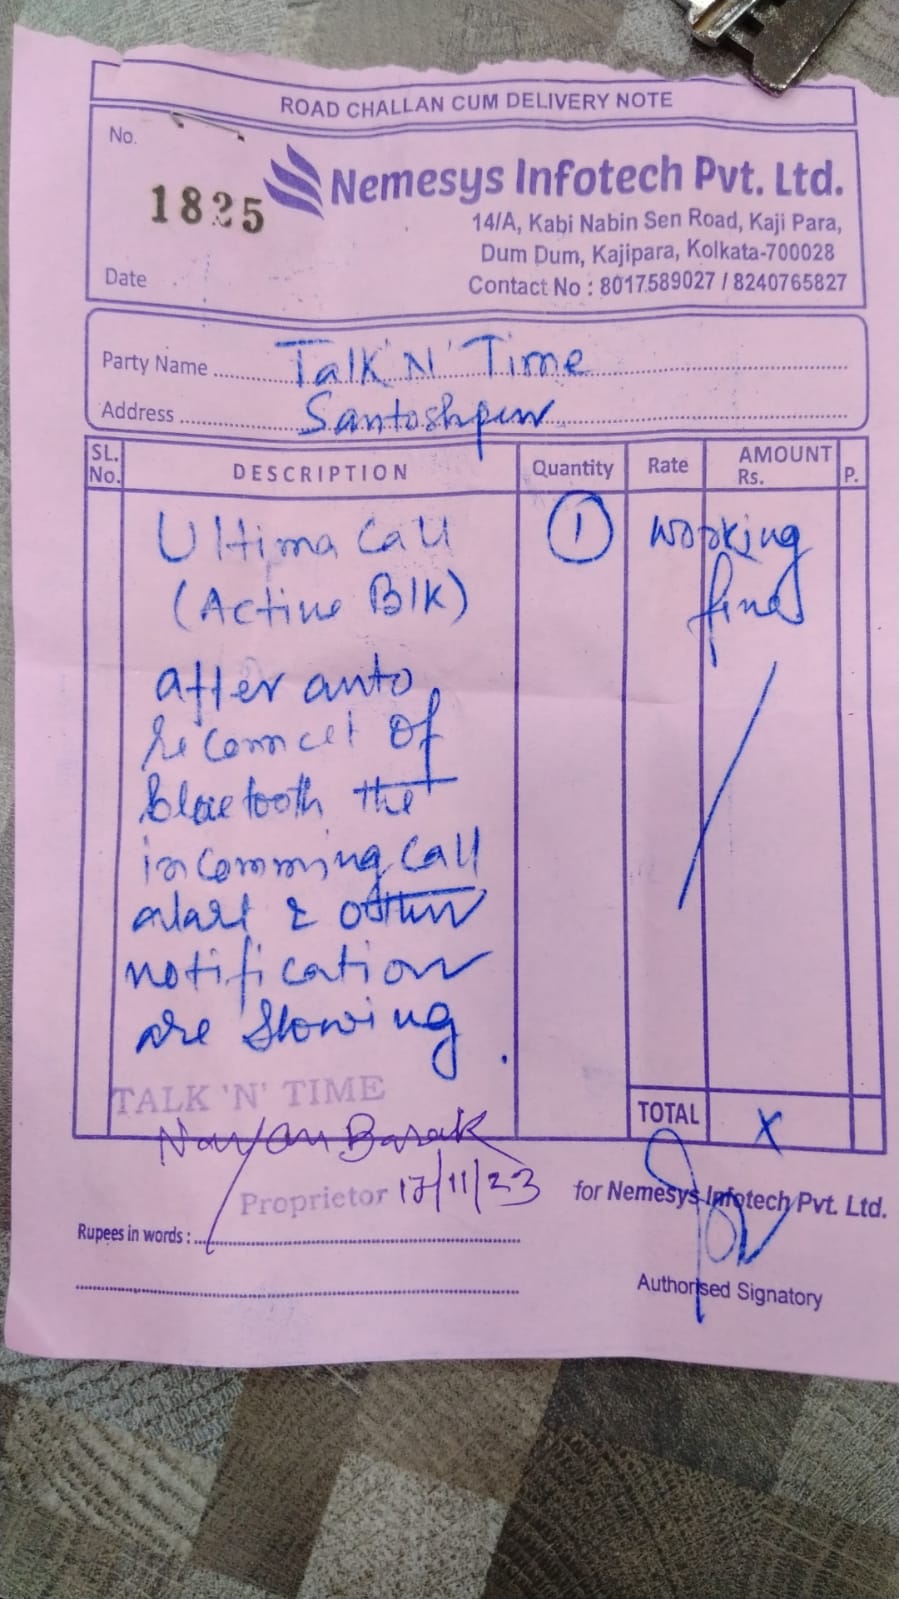 ROAD CHALLAN CUM DELIVERY NOTE
No.
1825
Nemesys Infotech Pvt. Ltd.
14/A, Kabi Nabin Sen Road, Kaji Para,
Dum Dum, Kajipara, Kolkata-700028
Contact No : 8017589027 / 8240765827
Date
Party Name Talk 'N' Time
Address Santoshpur
SL. No. DESCRIPTION Quantity Rate AMOUNT Rs. P.
Ultima Call 1 working
(Active Blk) fine
after auto
reconncet of
bluetooth the
incomming call
alart & other
notification
are Showing.
TALK 'N' TIME
TOTAL X
Nayan Basak
Proprietor 17/11/23
for Nemesys Infotech Pvt. Ltd.
Rupees in words :
Authorised Signatory